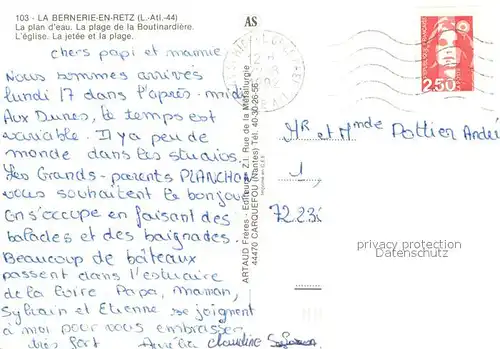 103 - LA BERNERIE-EN-RETZ (L.-Atl.-44)
La plan d'eau. La plage de la Boutinardière.
L'église. La jetée et la plage.
chers papi et mamie
Nous sommes arrivés
lundi 17 dans l'après-midi
Aux Dunes, le temps est
variable. Il y a peu de
monde dans les studios.
Les Grands-parents PLANCHON
vous souhaitent le bonjour
On s'occupe en faisant des
balades et des baignades.
Beaucoup de bâteaux
passent dans l'estuaire
de la Loire Papa, Maman,
Sylvain et Etienne se joignent
à moi pour vous embrasser
très fort Aurélie Claudine
AS
ARTAUD Frères - Editeurs - Z.I. Rue de la Métallurgie
44470 CARQUEFOU (Nantes) Tél. 40-30-26-56
RÉPUBLIQUE FRANÇAISE
2,50
Mr et Mme Pottier André
1,
privacy protection
Datenschutz